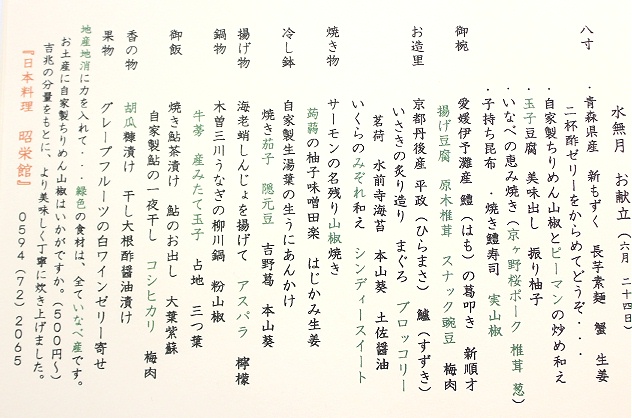 水無月 お献立(六月 二十四日)
八寸
・青森県産 新もずく 長芋素麺 蟹 生姜
二杯酢ゼリーをからめてどうぞ・・・
・自家製ちりめん山椒とピーマンの炒め和え
・玉子豆腐 美味出し 振り柚子
・いなべの恵み焼き(京ヶ野桜ポーク 椎茸 葱)
・子持ち昆布 ・焼き鱧寿司 実山椒
御椀 愛媛伊予灘産 鱧(はも)の葛叩き 新順才
揚げ豆腐 原木椎茸 スナック豌豆 梅肉
お造里 京都丹後産 平政(ひらまさ) 鱸(すずき)
いさきの炙り造り まぐろ ブロッコリー
茗荷 水前寺海苔 本山葵 土佐醤油
いくらのみぞれ和え シンディースイート
焼き物 サーモンの名残り山椒焼き
蒟蒻の柚子味噌田楽 はじかみ生姜
冷し鉢 自家製生湯葉の生うにあんかけ
焼き茄子 隠元豆 吉野葛 本山葵
揚げ物 海老蛸しんじょを揚げて アスパラ 檸檬
鍋物 木曽三川うなぎの柳川鍋 粉山椒
牛蒡 産みたて玉子 占地 三つ葉
御飯 焼き鮎茶漬け 鮎のお出し 大葉紫蘇
自家製鮎の一夜干し コシヒカリ 梅肉
香の物 胡瓜糠漬け 干し大根酢醤油漬け
果物 グレープフルーツの白ワインゼリー寄せ
地産地消に力を入れて・・緑色の食材は、全ていなべ産です。
お土産に自家製ちりめん山椒はいかがですか。(500円~)
吉兆の分量をもとに、より美味しく丁寧に炊き上げました。
『日本料理 昭栄館』 0594(72)2065